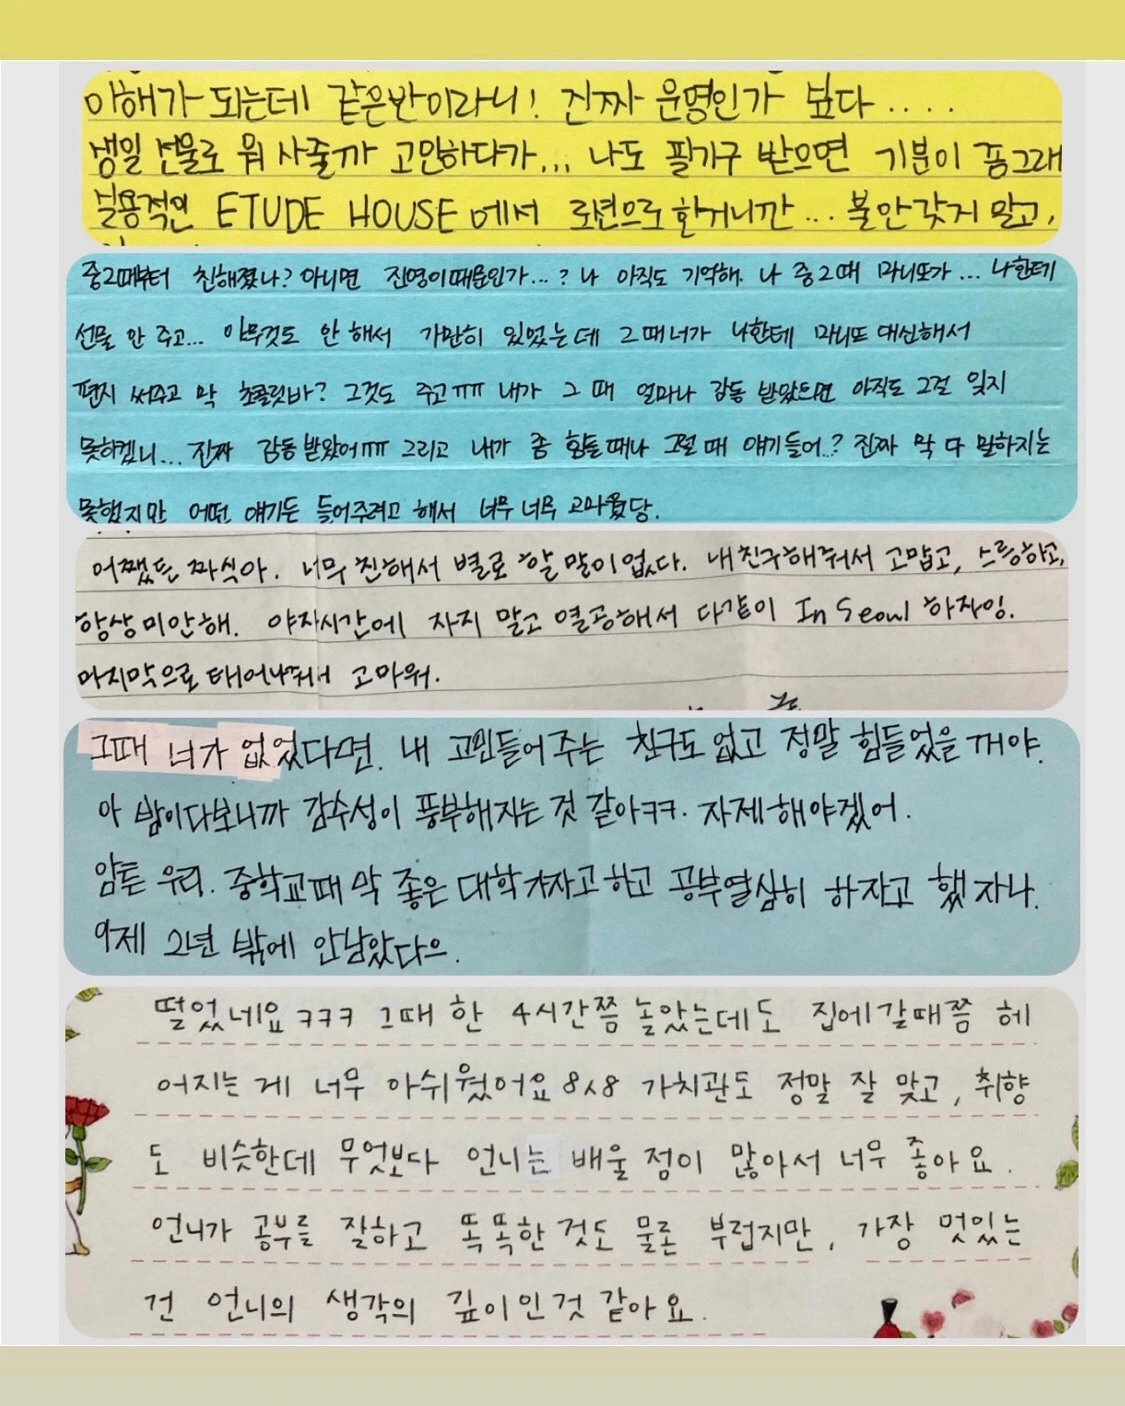 이해가 되는데 같은반이라니! 진짜 운명인가 보다....
생일 선물로 뭐 사줄까 고민하다가... 나도 필기구 받으면 기분이 좀 그래
실용적인 ETUDE HOUSE에서 로션으로 한거니깐... 불안갖지 말고,
중2때부터 친해졌나? 아니면 진영이때문인가...? 나 아직도 기억해. 나 중2때 마니또가... 나한테
선물 안 주고... 아무것도 안 해서 가만히 있었는데 그때 너가 나한테 마니또 대신해서
편지 써주고 막 초콜릿바? 그것도 주고ㅠㅠ 내가 그 때 얼마나 감동 받았으면 아직도 그걸 잊지
못하겠니... 진짜 감동받았어ㅠㅠ 그리고 내가 좀 힘들때나 그럴 때 얘기들어..? 진짜 막 다 말하지는
못했지만 어떤 얘기든 들어주려고 해서 너무 너무 고마웠당.
어쨌든 짜식아. 너무 친해서 별로 할 말이 없다. 내 친구해줘서 고맙고, 스릉하고,
항상 미안해. 야자시간에 자지 말고 열공해서 다같이 In Seoul 하자잉.
마지막으로 태어나줘서 고마워.
그때 너가 없었다면. 내 고민들어주는 친구도 없고 정말 힘들었을꺼야.
아 밤이다보니까 감수성이 풍부해지는 것 같아ㅋㅋ. 자제해야겠어.
암튼 우리. 중학교때 막 좋은 대학가자고하고 공부열심히 하자고 했자나.
이제 2년 밖에 안남았다으.
떨었네요 ㅋㅋㅋ 그때 한 4시간쯤 놀았는데도 집에갈때쯤 헤
어지는 게 너무 아쉬웠어요 8ㅅ8 가치관도 정말 잘 맞고, 취향
도 비슷한데 무엇보다 언니는 배울점이 많아서 너무 좋아요.
언니가 공부를 잘하고 똑똑한 것도 물론 부럽지만, 가장 멋있는
건 언니의 생각의 깊이인것 같아요.